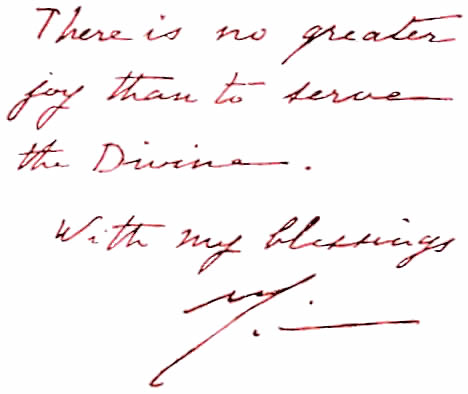 There is no greater
joy than to serve
the Divine.
With my blessings